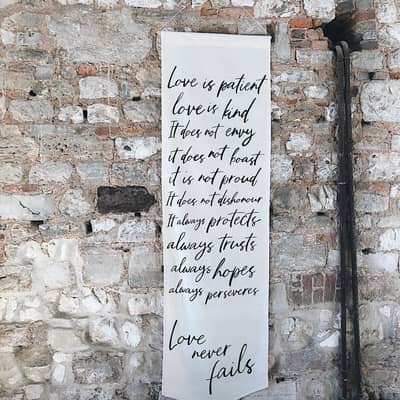 Love is patient
love is kind
It does not envy
it does not boast
it is not proud
It does not dishonour
It always protects
always trusts
always hopes
always perseveres
Love
never
fails